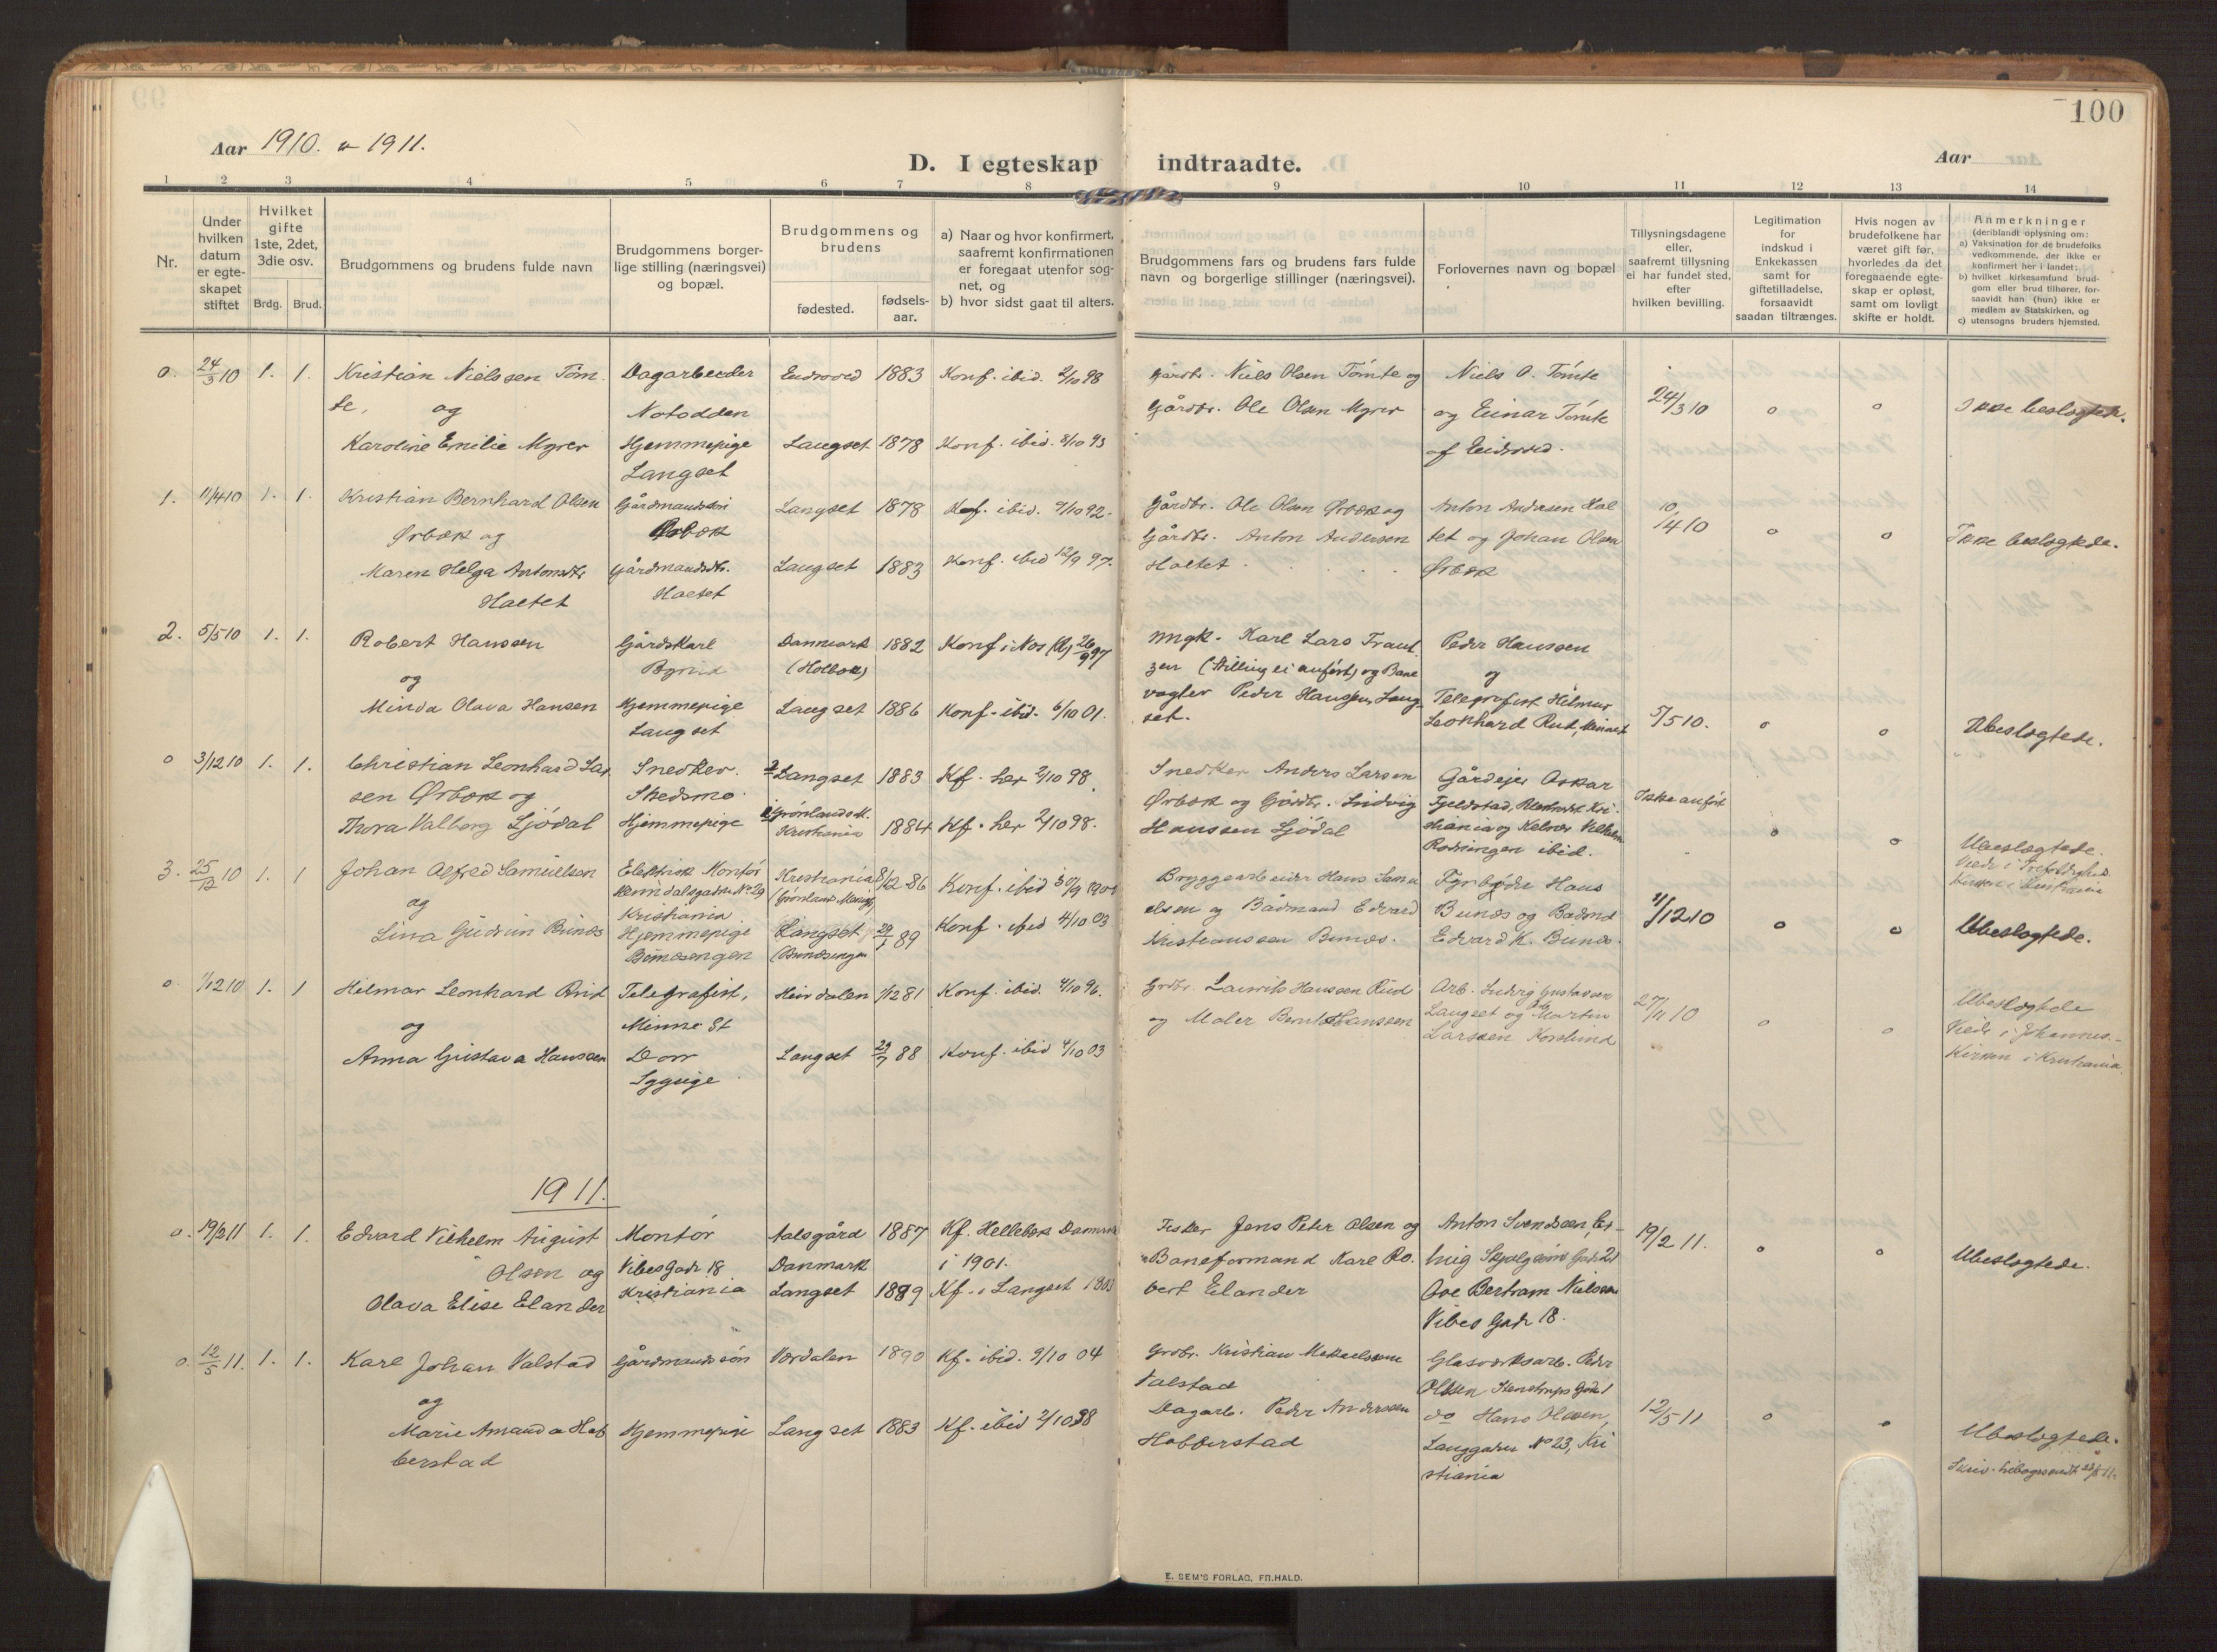 100
Aar 1910. & 1911.
D. I egteskap indtraadte.
Aar
1 2 3 4 5 6 7 8 9 10 11 12 13 14
Nr.
Under hvilken datum er egteskapet stiftet
Hvilket gifte 1ste, 2det, 3die osv.
Brdg. Brud.
Brudgommens og brudens fulde navn
Brudgommens borgerlige stilling (næringsvei) og bopæl.
Brudgommens og brudens
fødested.
fødselsaar.
a) Naar og hvor konfirmert, saafremt konfirmationen er foregaat utenfor sognet, og
b) hvor sidst gaat til alters.
Brudgommens fars og brudens fars fulde navn og borgerlige stillinger (næringsvei).
Forlovernes navn og bopæl
Tillysningsdagene eller, saafremt tillysning ei har fundet sted, efter hvilken bevilling.
Legitimation for indskud i Enkekassen samt for giftetilladelse, forsaavidt saadan tiltrænges.
Hvis nogen av brudefolkene har været gift før, hvorledes da det foregaaende egteskap er opløst, samt om lovligt skifte er holdt.
Anmerkninger (deriblandt oplysning om:
a) Vaksination for de brudefolks vedkommende, der ikke er konfirmert her i landet;
b) hvilket kirkesamfund brudgom eller brud tilhører, forsaavidt han (hun) ikke er medlem av Statskirken, og
c) utensogns bruders hjemsted.
o. 24/3 10 1. 1. Kristian Nielssen Töm- Dagarbeider Eidsvold 1883 Konf. ibid. 2/10 98 Gårdbr. Niels Olsen Tömte og Niels O. Tömte
te, og Notodden Gårdbr. Ole Olsen Myrer og Einar Tömte 24/3 10 o o Ikke beslegtede.
Karoline Emilie Myrer Hjemmepige Langset 1878 Konf. ibid. 8/10 93 af Eidsvold.
Langset
1. 11/4 10 1. 1. Kristian Bernhard Olsen Gårdmandssön Langset 1878 Kof. ibid. 9/10 92. Gårdbr. Ole Olsen Ørbæk og Anton Andersen Hol
Ørbæk og Ørbæk Gårdbr. Anton Andersen tet og Johan Olsen 10/4 10 o o Ikke beslegtede.
Maren Helga Antonsdtr Gårdmandsdtr. Langset 1883 Konf. ibid 12/9 97. Holtet Ørbæk
Holtet Holtet
2. 5/5 10 1. 1. Robert Hansen Gårdskarl Danmark 1882 Konf i Nes (R) 26/9 97 Ungk. Karl Lars Frant Peder Hanssen
og (Holbæk) zen (Stilling ei anfört) og Bane og
Minda Olava Hansen Hjemmepige Langset 1886 Konf. ibid. 6/10 01. vogter Peder Hanssen, Lang Telegrafist Hilmar
Langset set. Leonhard Rud, Minnes 5/5 10. o o Ubeslegtede.
o 3/12 10 1. 1. Christian Leonhard Lar Snedker. Langset 1883 Kf. her 2/10 98. Snedker Anders Larsen Gårdejer Oskar
sen Ørbæk og Skedsmo. Grönlands M. Ørbæk og Gårdbr. Ludvig Fjeldstad, Kri Ikke anfört
Thora Valborg Ljödal Hjemmepige Kristiania 1884 Kf. her 2/10 98. Hanssen Ljödal stiania og Kelner Vilhelm o
Rodningen ibid. o Ubeslegtede.
3. 25/12 10 1. 1 Johan Alfred Samuelsen Elektrisk Montör Kristiania 8/12 86 Konf. ibid 1901 Bryggearbeider Hans Samu Fyrböder Hans Viede i Trefoldigheds
og No 29 (Grönlands Menigh) elsen og Bådmand Edvard Bunæs og Bådmd 11/12 10 Kirken i Kristiania
Lina Gudrun Bunæs Kristiania Langset 29/1 89 Konf. ibid 4/10 03 Kristianssen Bunæs. Edvard K. Bunæs. o o Ubeslegtede.
Hjemmepige (Bunæsengen
Bunæsengen
o 1/12 10 1. 1 Hilmar Leonhard Rud Telegrafist, Heirdalen 1/2 81 Konf. ibid. 4/10 96. Grdbr. Laurits Hanssen Rud Arb. Ludvig Gustavsen
og Minne St og Maler Bernt Hanssen Langset og Martin 27/11 10 o o Ubeslegtede
Anna Gustava Hanssen Dorr Langset 29/7 88 Konf. ibid 4/10 03 Larssen Korslund Viede i Johannes-
Syguige Kirken i Kristiania.
1911.
o. 19/2 11 1. 1. Edvard Vilhelm August Montör Aalsgård 1887 Kf. Hellebæk Danmark Fisker Jens Peter Olsen og Anton Svendsen, 19/2 11. o o Ubeslegtede.
Olsen og Vibesgade 18 Danmark i 1901. Baneformand Karl Ro. Gade 21
Olava Elise Elander Kristiania Langset 1889 Kf. i Langset 1903 bert Elander Ove Bertram Nielsen
Vibes Gade 18.
o. 12/5 11. 1. 1. Karl Johan Valstad Gårdmandssön Værdalen 1890 Kf. ibid. 9/10 04 Grdbr. Kristian Mikaelssen Glasværksarb. Peder
og Valstad Olssen Stenstrups Gade 1
Marie Amanda Hob Hjemmepige Langset 1883 Kf. ibid 2/10 98 Dagarb. Peder Anderssen do Hans Olssen, 12/5 11 o o Ubeslegtede.
berstad Hobberstad Langgaden No 23, Kri
stiania
E. SEM'S FORLAG, FR.HALD.